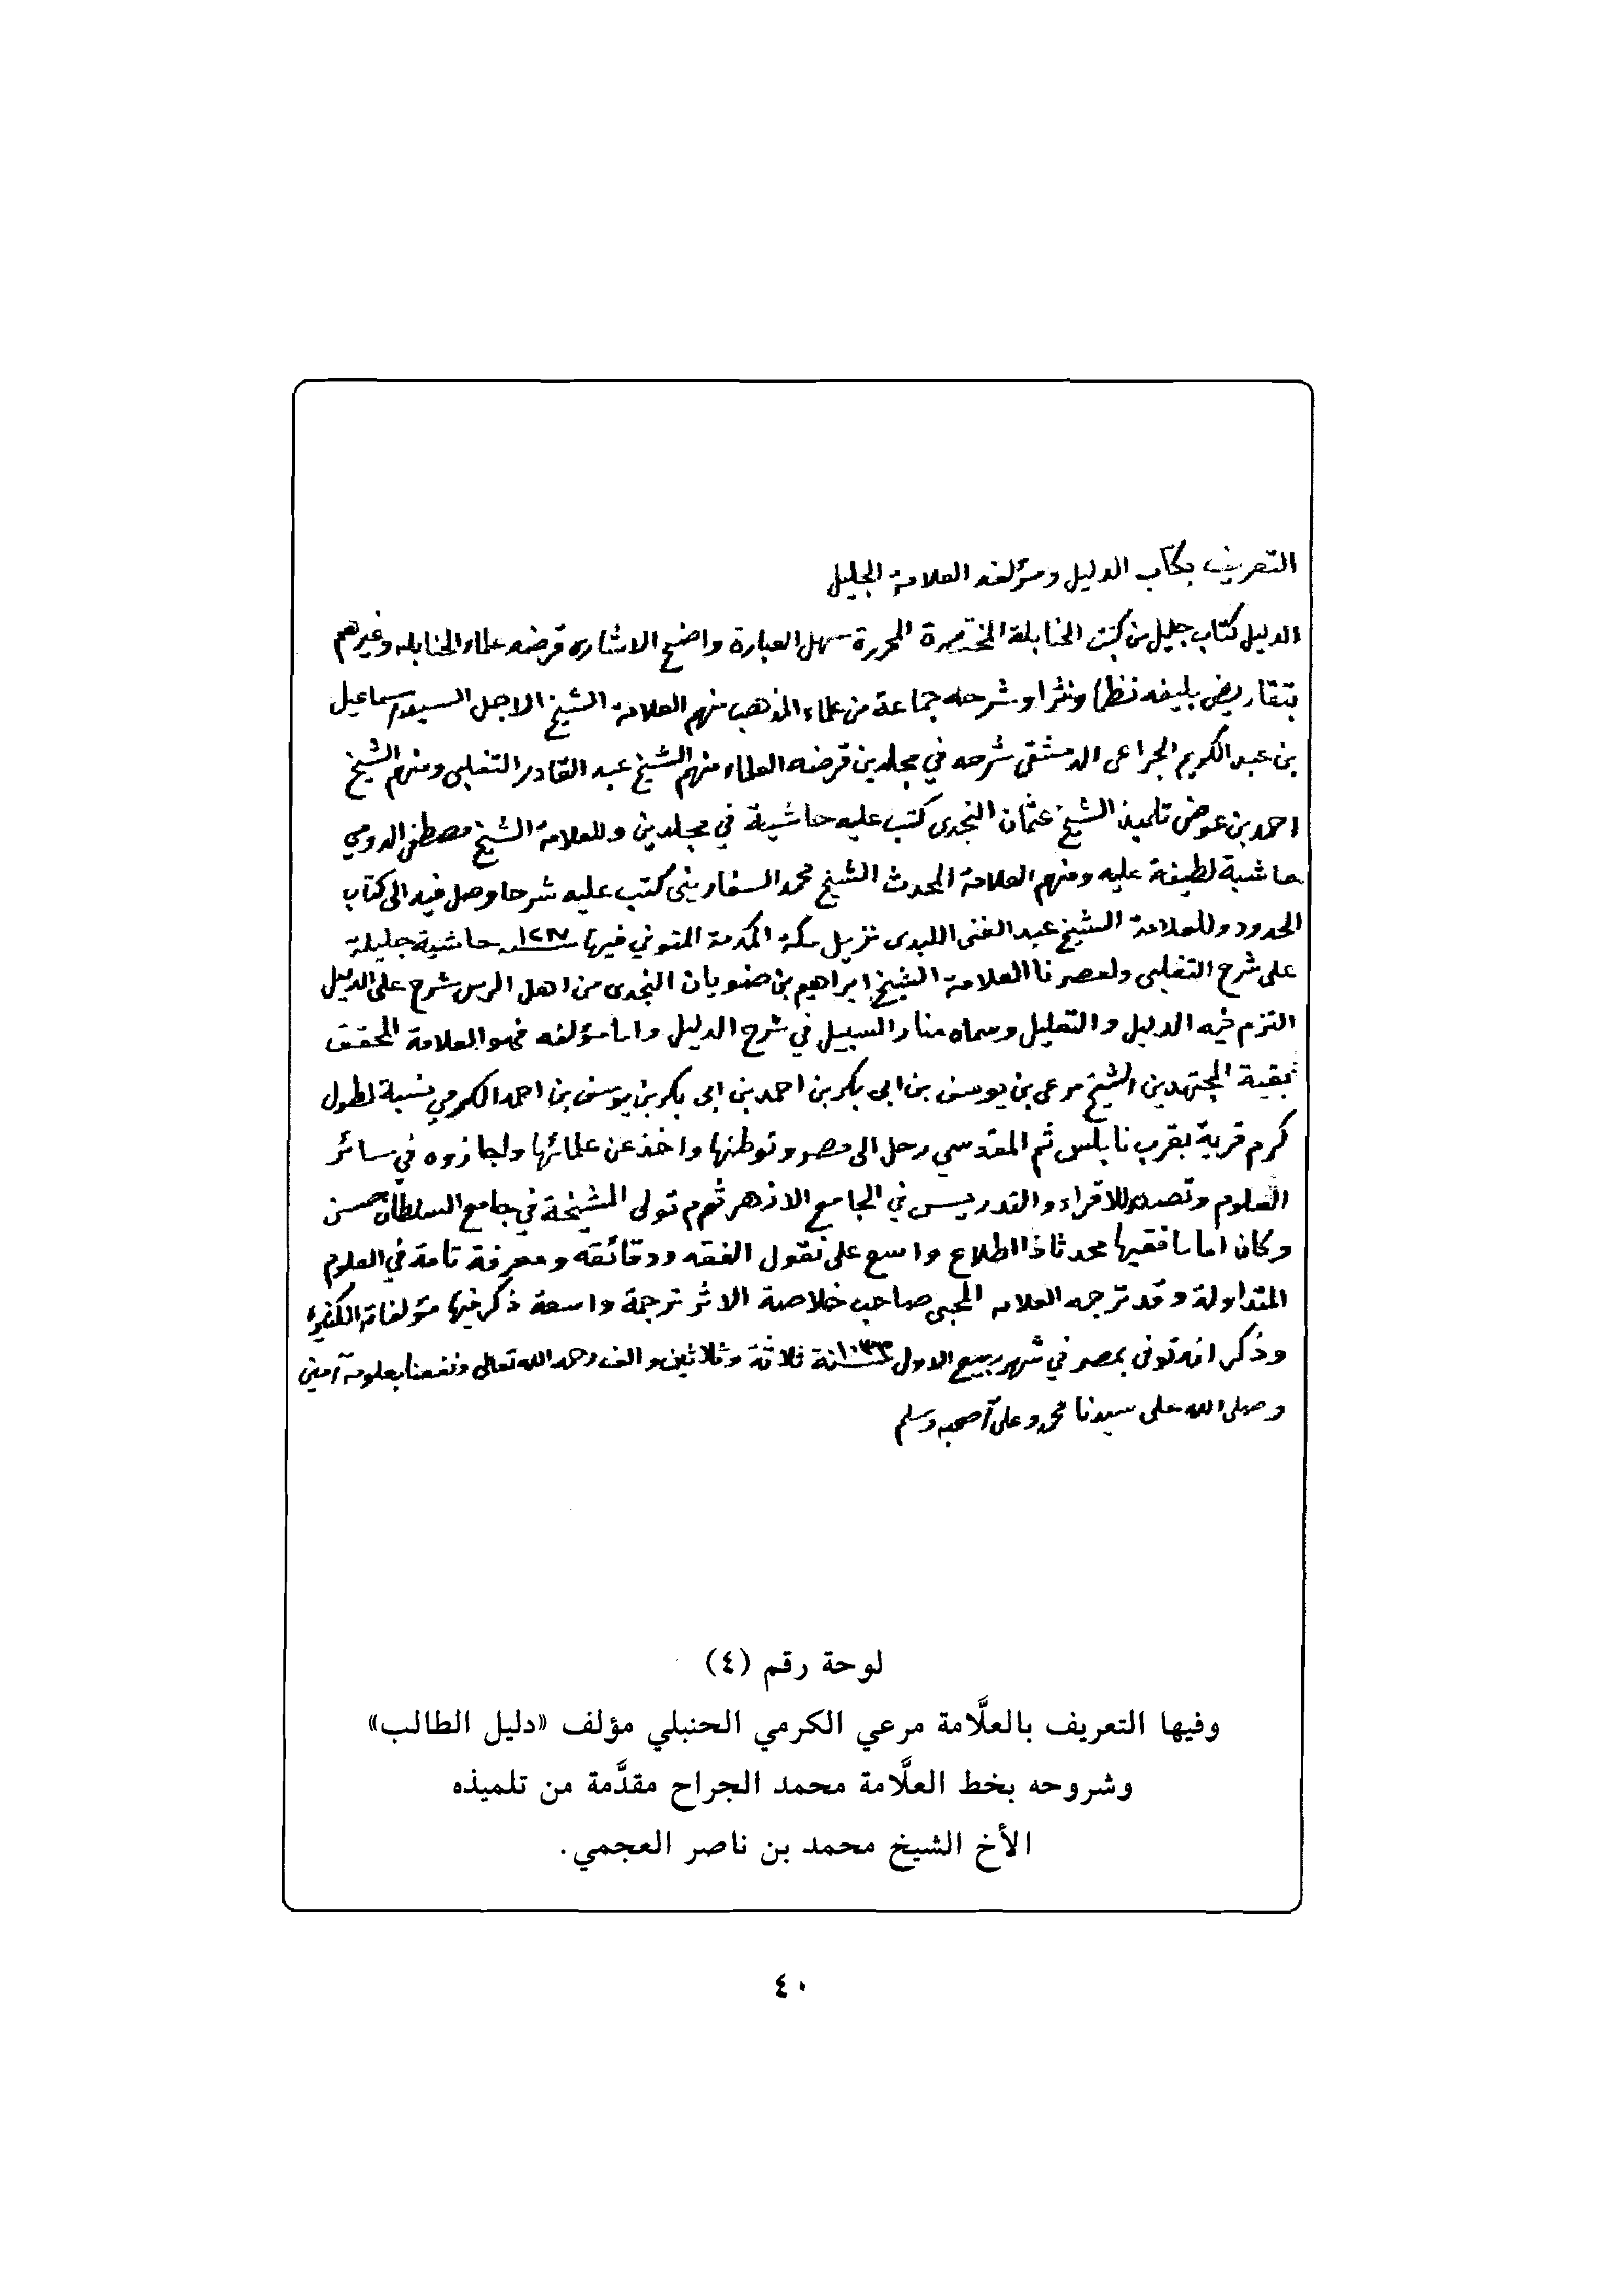 التعريف بكتاب الدليل ومؤلفه العلامة الجليل
الدليل كتاب جليل من كتب الحنابلة المختصرة المحررة سهل العبارة واضح الاشاره قرضه علماء الحنابله وغيرهم
بتقاريض بليغه نظما ونثرا وشرحه جماعة من علماء المذهب منهم العلامة الشيخ الاجل السيد اسماعيل
بن عبد الكريم الجراعى الدمشقى شرحه في مجلدين قرضه العلماء منهم الشيخ عبد القادر التغلبى ومنهم الشيخ
احمد بن عوض تلميذ الشيخ عثمان النجدى كتب عليه حاشية في مجلدين وللعلامة الشيخ مصطفى الدومي
حاشية لطيفة عليه ومنهم العلامة المحدث الشيخ محمد السفارينى كتب عليه شرحا وصل فيه الى كتاب
الحدود وللعلامة الشيخ عبد الغنى اللبدى نزيل مكة المكرمة المتوفي فيها حاشية جليلة
على شرح التغلبى ولعصرنا العلامة الشيخ ابراهيم بن ضويان النجدى من اهل الرس شرح على الدليل
التزم فيه الدليل والتعليل وسماه منار السبيل في شرح الدليل واما مؤلفه فهو العلامة المحقق
بقية المجتهدين الشيخ مرعى بن يوسف بن ابى بكر بن احمد بن ابى بكر بن يوسف بن احمد الكرمي نسبة لطول
كرم قرية بقرب نابلس ثم المقدسي رحل الى مصر وتوطنها واخذ عن علمائها واجازوه في سائر
العلوم وتصدر للاقراء والتدريس في الجامع الازهر ثم تولى المشيخة في جامع السلطان حسن
وكان اماما فقيها محدثا ذا اطلاع واسع على نقول الفقه ودقائقه ومعرفة تامة في العلوم
المتداولة وقد ترجمه العلامه المحبى صاحب خلاصة الاثر ترجمة واسعة ذكر فيها مؤلفاته الكثيرة
وذكر انه توفى بمصر في شهر ربيع الاول سنة ١٠٣٣ ثلاثة وثلاثين والف رحمه الله تعالى ونفعنا بعلومه آمين
وصلى الله على سيدنا محمد وعلى آ صحبه وسلم
لوحة رقم (٤)
وفيها التعريف بالعلَّامة مرعي الكرمي الحنبلي مؤلف «دليل الطالب»
وشروحه بخط العلَّامة محمد الجراح مقدَّمة من تلميذه
الأخ الشيخ محمد بن ناصر العجمي.
٤٠